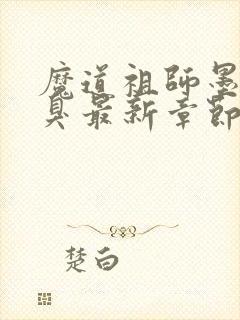 魔道祖師墨
臭最新章節
楚白